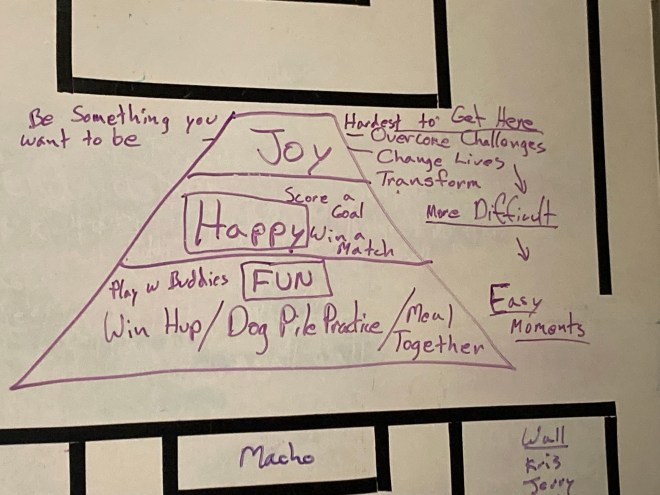 Be Something you
want to be
Joy
Hardest to Get Here
- Overcome Challenges
- Change Lives
- Transform
More Difficult
Easy
Moments
Score a
Goal
Happy
Win a
Match
Play w Buddies
FUN
Win Hup/Dog Pile Practice/Meal
Together
Macho
Wall
Kris
Jerry